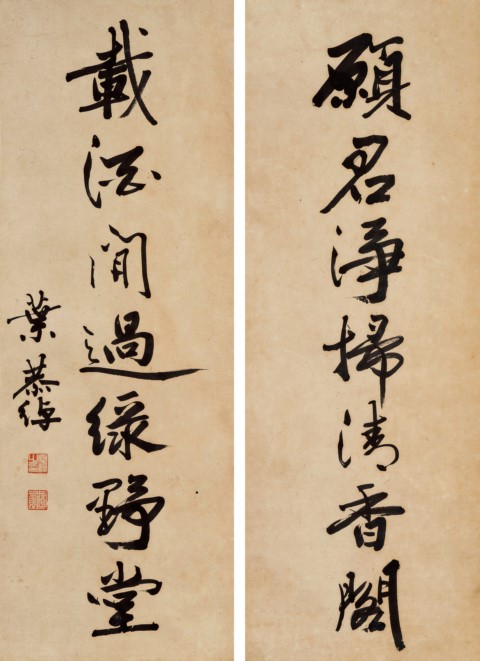 願君淨掃清香閣
載酒閒過綠野堂
葉恭綽